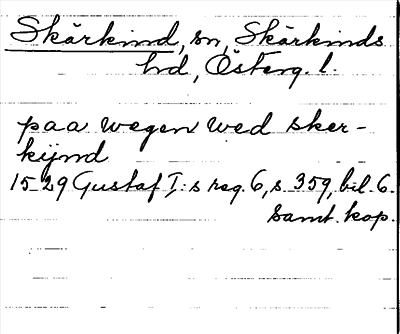 Skärkind, sn, Skärkinds
hd, Österg. l.
paa wegen wed sker-
kijnd
1529 Gustaf I:s reg. 6, s. 359, bil. 6.
Samt. kop.